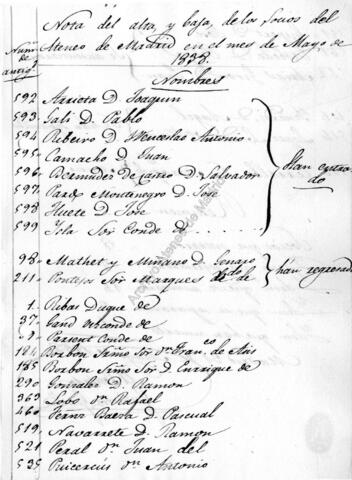 Nota del alta, y baja, de los socios del
Ateneo de Madrid en el mes de Mayo de
1838.
Num.
de
antig.
Nombres
592 Arrieta D. Joaquin
593 Gali D. Pablo
594 Ribeiro D. Wenceslao Antonio
595 Camacho D. Juan
596 Bermudez de Castro D. Salvador
597 Pardo Montenegro D. José
598 Huete D. José
599 Isla Sor Conde de
Han entrado
98 Mathet y Miñano D. Genaro
211 Pontejos Sor Marques de
han regresado
1 Ribas Duque de
37 Gand Visconde de
Parsent Conde de
184 Borbon Srmo Sor Dn Franco de Asis
185 Borbon Srmo Sor D. Enrique de
290 Gonzalez D. Ramon
363 Lobo Dn Rafael
460 Baeza D. Pascual
519 Navarrete D. Ramon
521 Peral Dn Juan del
535 Puicercús Dn Antonio